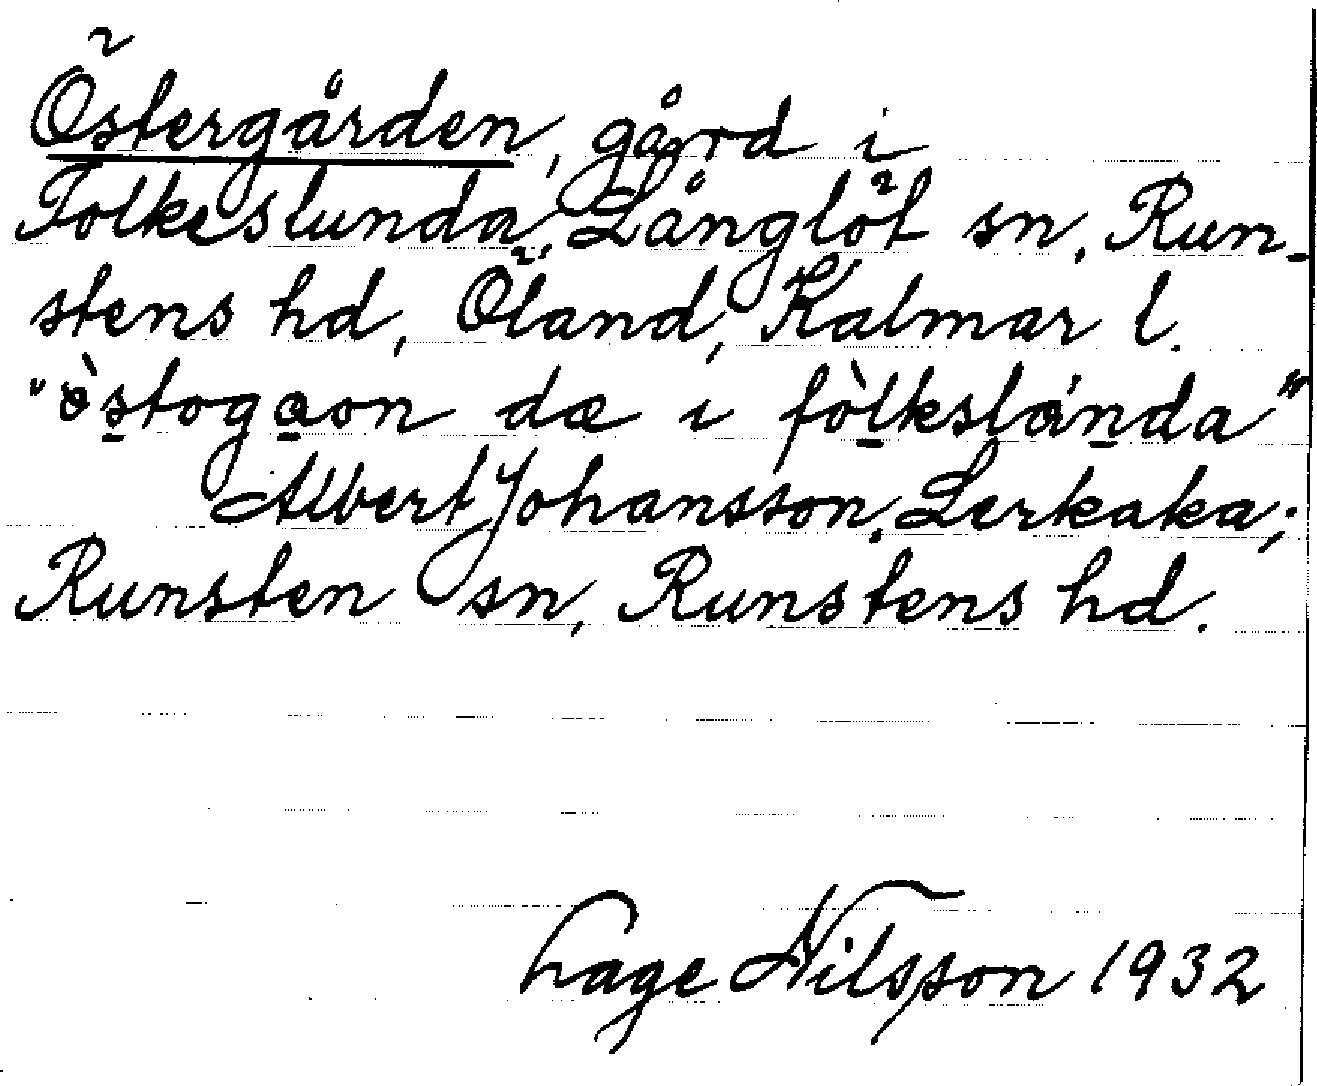 Östergården, gård i
Folkeslunda, Långlöt sn, Run-
stens hd, Öland, Kalmar l.
"òstogaon dæ i fòlkslánda"
Albert Johansson, Lerkaka;
Runsten sn, Runstens hd.
Hage Nilsson 1932